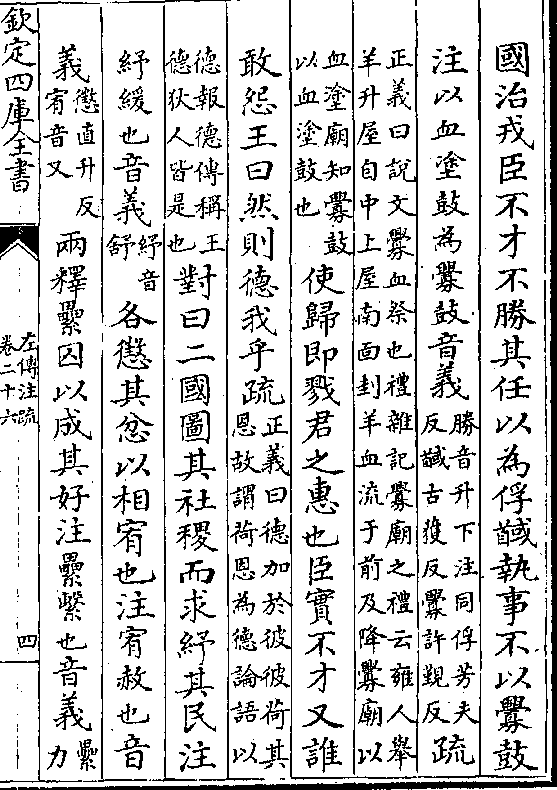 國治戎臣不才不勝其任以為俘馘執事不以釁鼓
注以血塗鼓為釁鼓音義
勝音升下注同俘芳夫
反馘古獲反釁許覲反
疏
正義曰說文釁血祭也禮雜記釁廟之禮云雍人舉
羊升屋自中上屋南面封羊血流于前及降釁廟以
血塗廟知釁鼓
以血塗鼓也
使歸即戮君之惠也臣實不才又誰
敢怨王曰然則德我乎疏
正義曰德加於彼彼荷其
恩故謂荷恩為德論語以
德報德傳稱王
德狄人皆是也
對曰二國圖其社稷而求紓其民注
紓緩也音義
紓音
舒
各懲其忿以相宥也注宥赦也音
義
懲直升反
宥音又
兩釋纍囚以成其好注纍繫也音義
纍
力
欽定四庫全書
左傳注疏
卷二十六
四